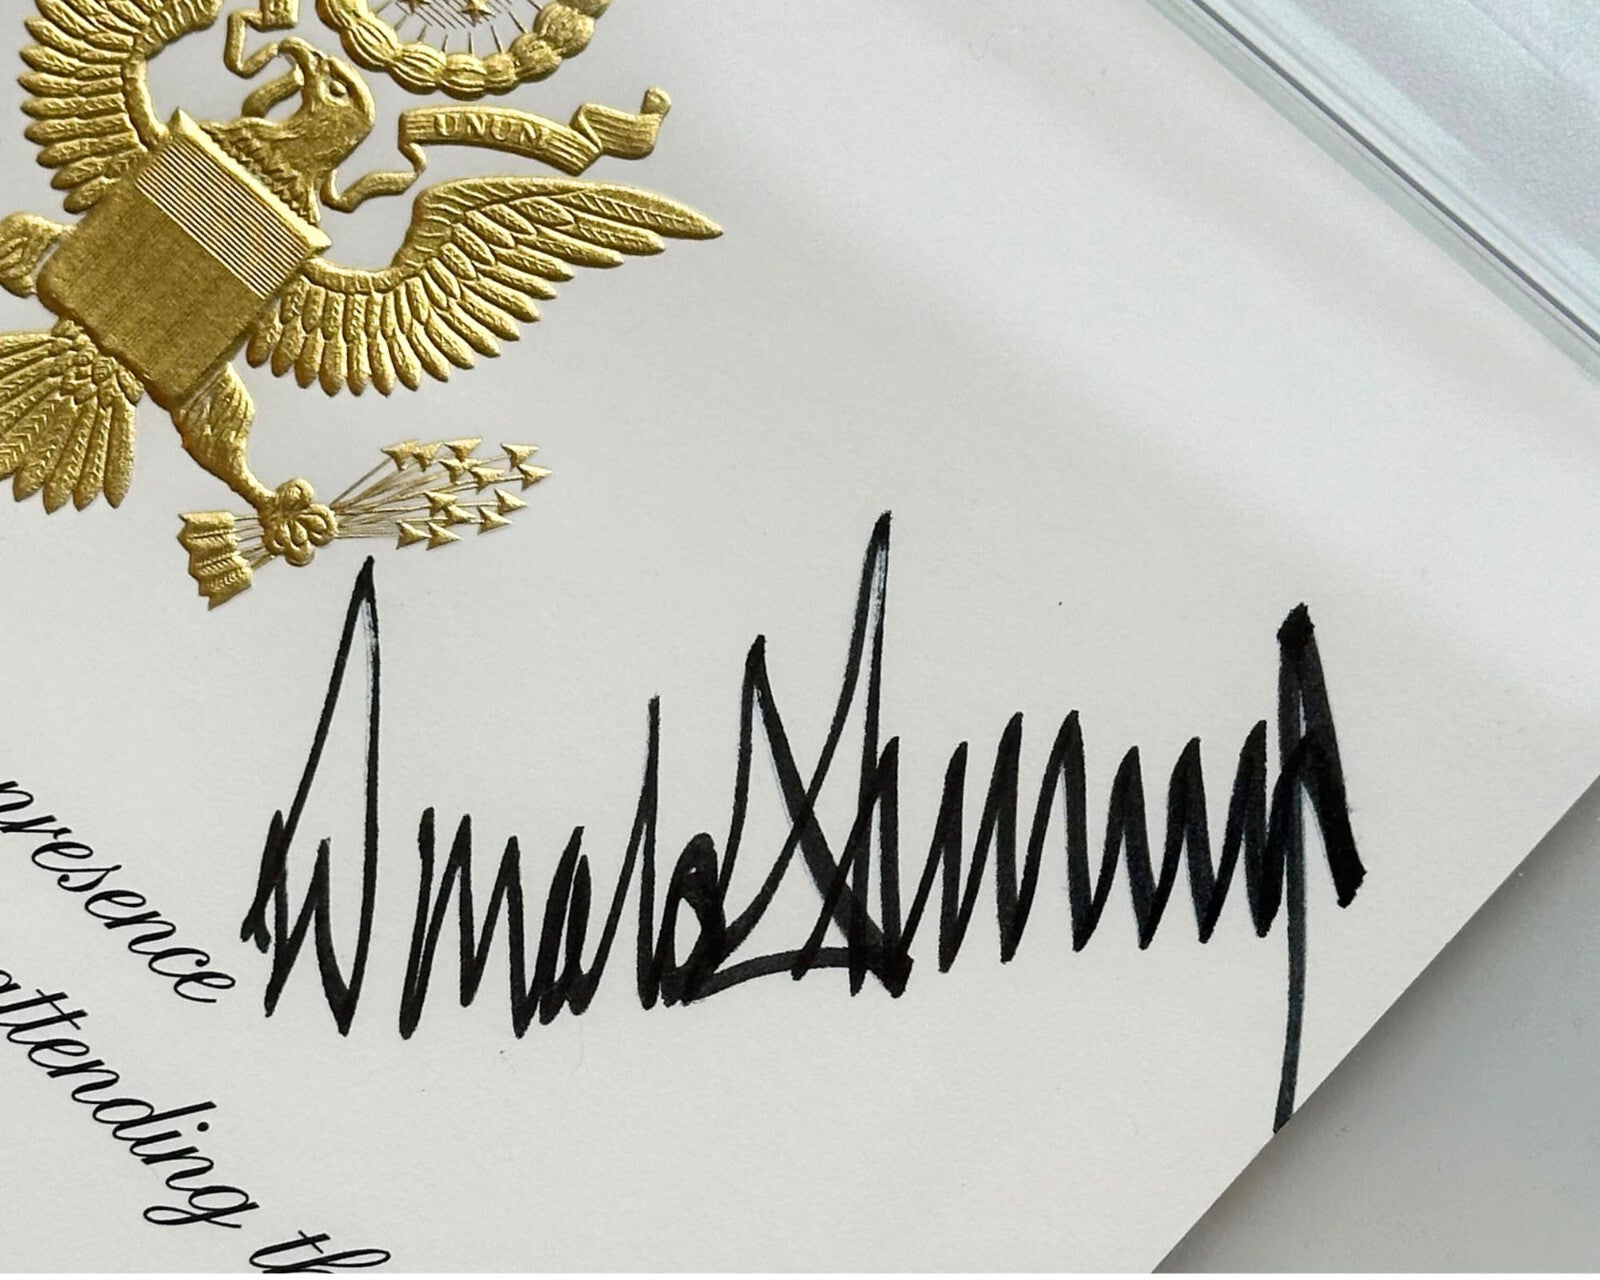 UNUM
Donald Trump
presence
attending th